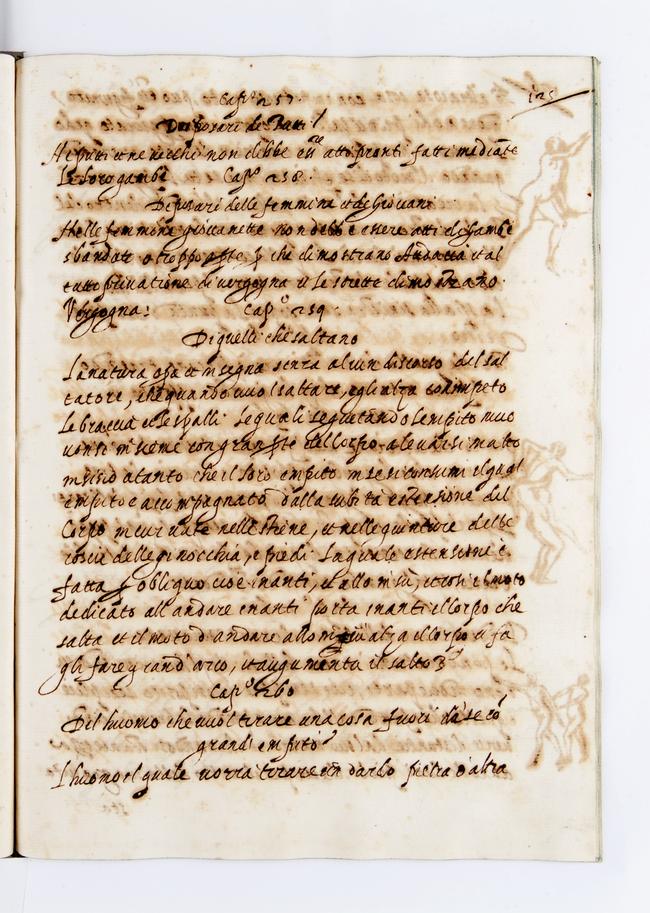 125
Cap.º 257.
De posari de Putti
Ne putti et ne vecchi non debbe eßre atti pronti fatti mediāte
le loro gambe Cap.º 258.
De posari delle femmine et de Giovani
Nelle femmine giovanette non debb'e essere atti di gambe
sbandate o troppo aperte, che dimostrano Audacia et al
tutto privatione di vergogna et le strette dimostrano
Vergogna: Cap.º 259
Di quelli che saltano
La natura opa et insegna senza alcun discorso del sal
tatore, che quando vuol saltare, egli alza con impeto
le braccia et le spalli le quali seguitando l'empito
insieme con gran pte del corpo a levarsi in alto
insino a tanto che il loro empito in se si consumi il qual
empito e accompagnato dalla subita estensione del
Corpo incurvate nelle schine, et nelle giunture delle
coscie delle ginocchia, e piedi la quale estensione e
fatta p obliquo cioe inanti, et allo insu, et cosi el moto
dedicato all'andare inanti porta inanti il corpo che
salta et il moto d'andare allo insu alza il corpo et fa
gli fare grand'arco, et augumenta il salto
Cap.º 260
Del huomo che vuol tirare una cosa fuori da se cō
grand'empito
L huomo el quale vorra tirare un dardo pietra o altra